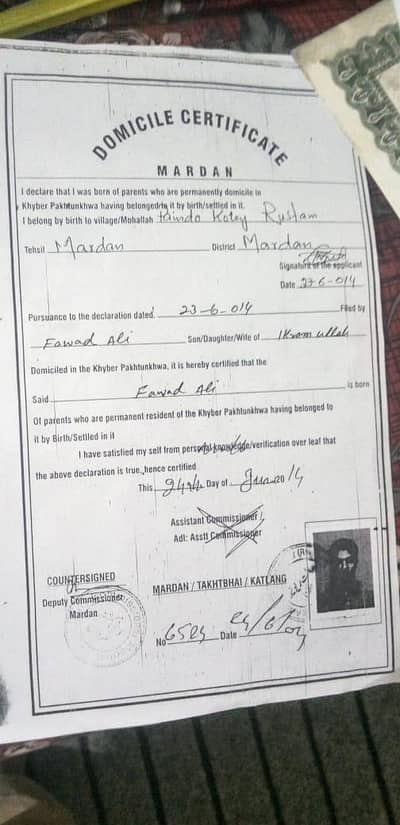 DOMICILE CERTIFICATE
MARDAN
I declare that I was born of parents who are permanently domicile in
Khyber Pakhtunkhwa having belonged to it by birth/settled in it.
I belong by birth to village/Mohallah Kotey Rustam
Tehsil Mardan District Mardan
Signature of the applicant
Date 23-6-014
Pursuance to the declaration dated. 23-6-014 Filed by
Fawad Ali Son/Daughter/Wife of Ikram ullah
Domiciled in the Khyber Pakhtunkhwa, it is hereby certified that the
Said Fawad Ali is born
Of parents who are permanent resident of the Khyber Pakhtunkhwa having belonged to
it by Birth/Settled in it
I have satisfied my self from personal knowledge/verification over leaf that
the above declaration is true, hence certified
This 24th Day of June 2014
Assistant Commissioner /
Adl: Asstt Commissioner
COUNTERSIGNED
MARDAN / TAKHTBHAI / KATLANG
Deputy Commissioner
Mardan
No Date